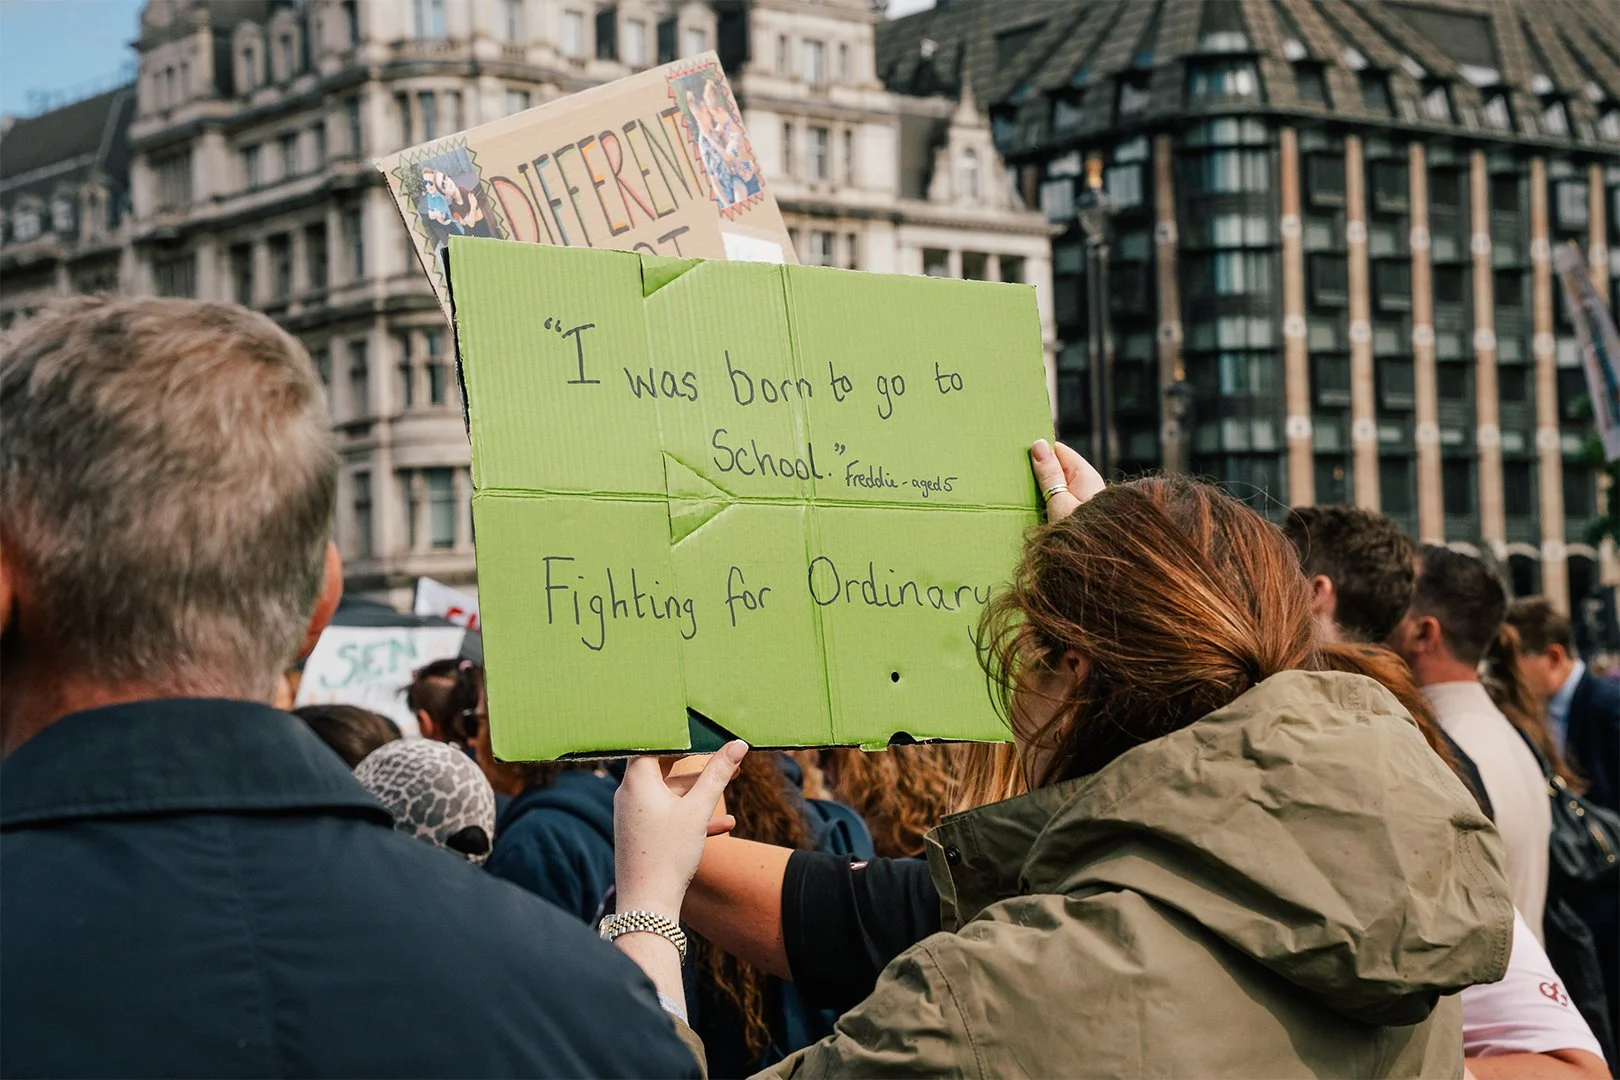 DIFFERENT
“I was born to go to
School.” Freddie - aged 5
Fighting for Ordinary
SEN